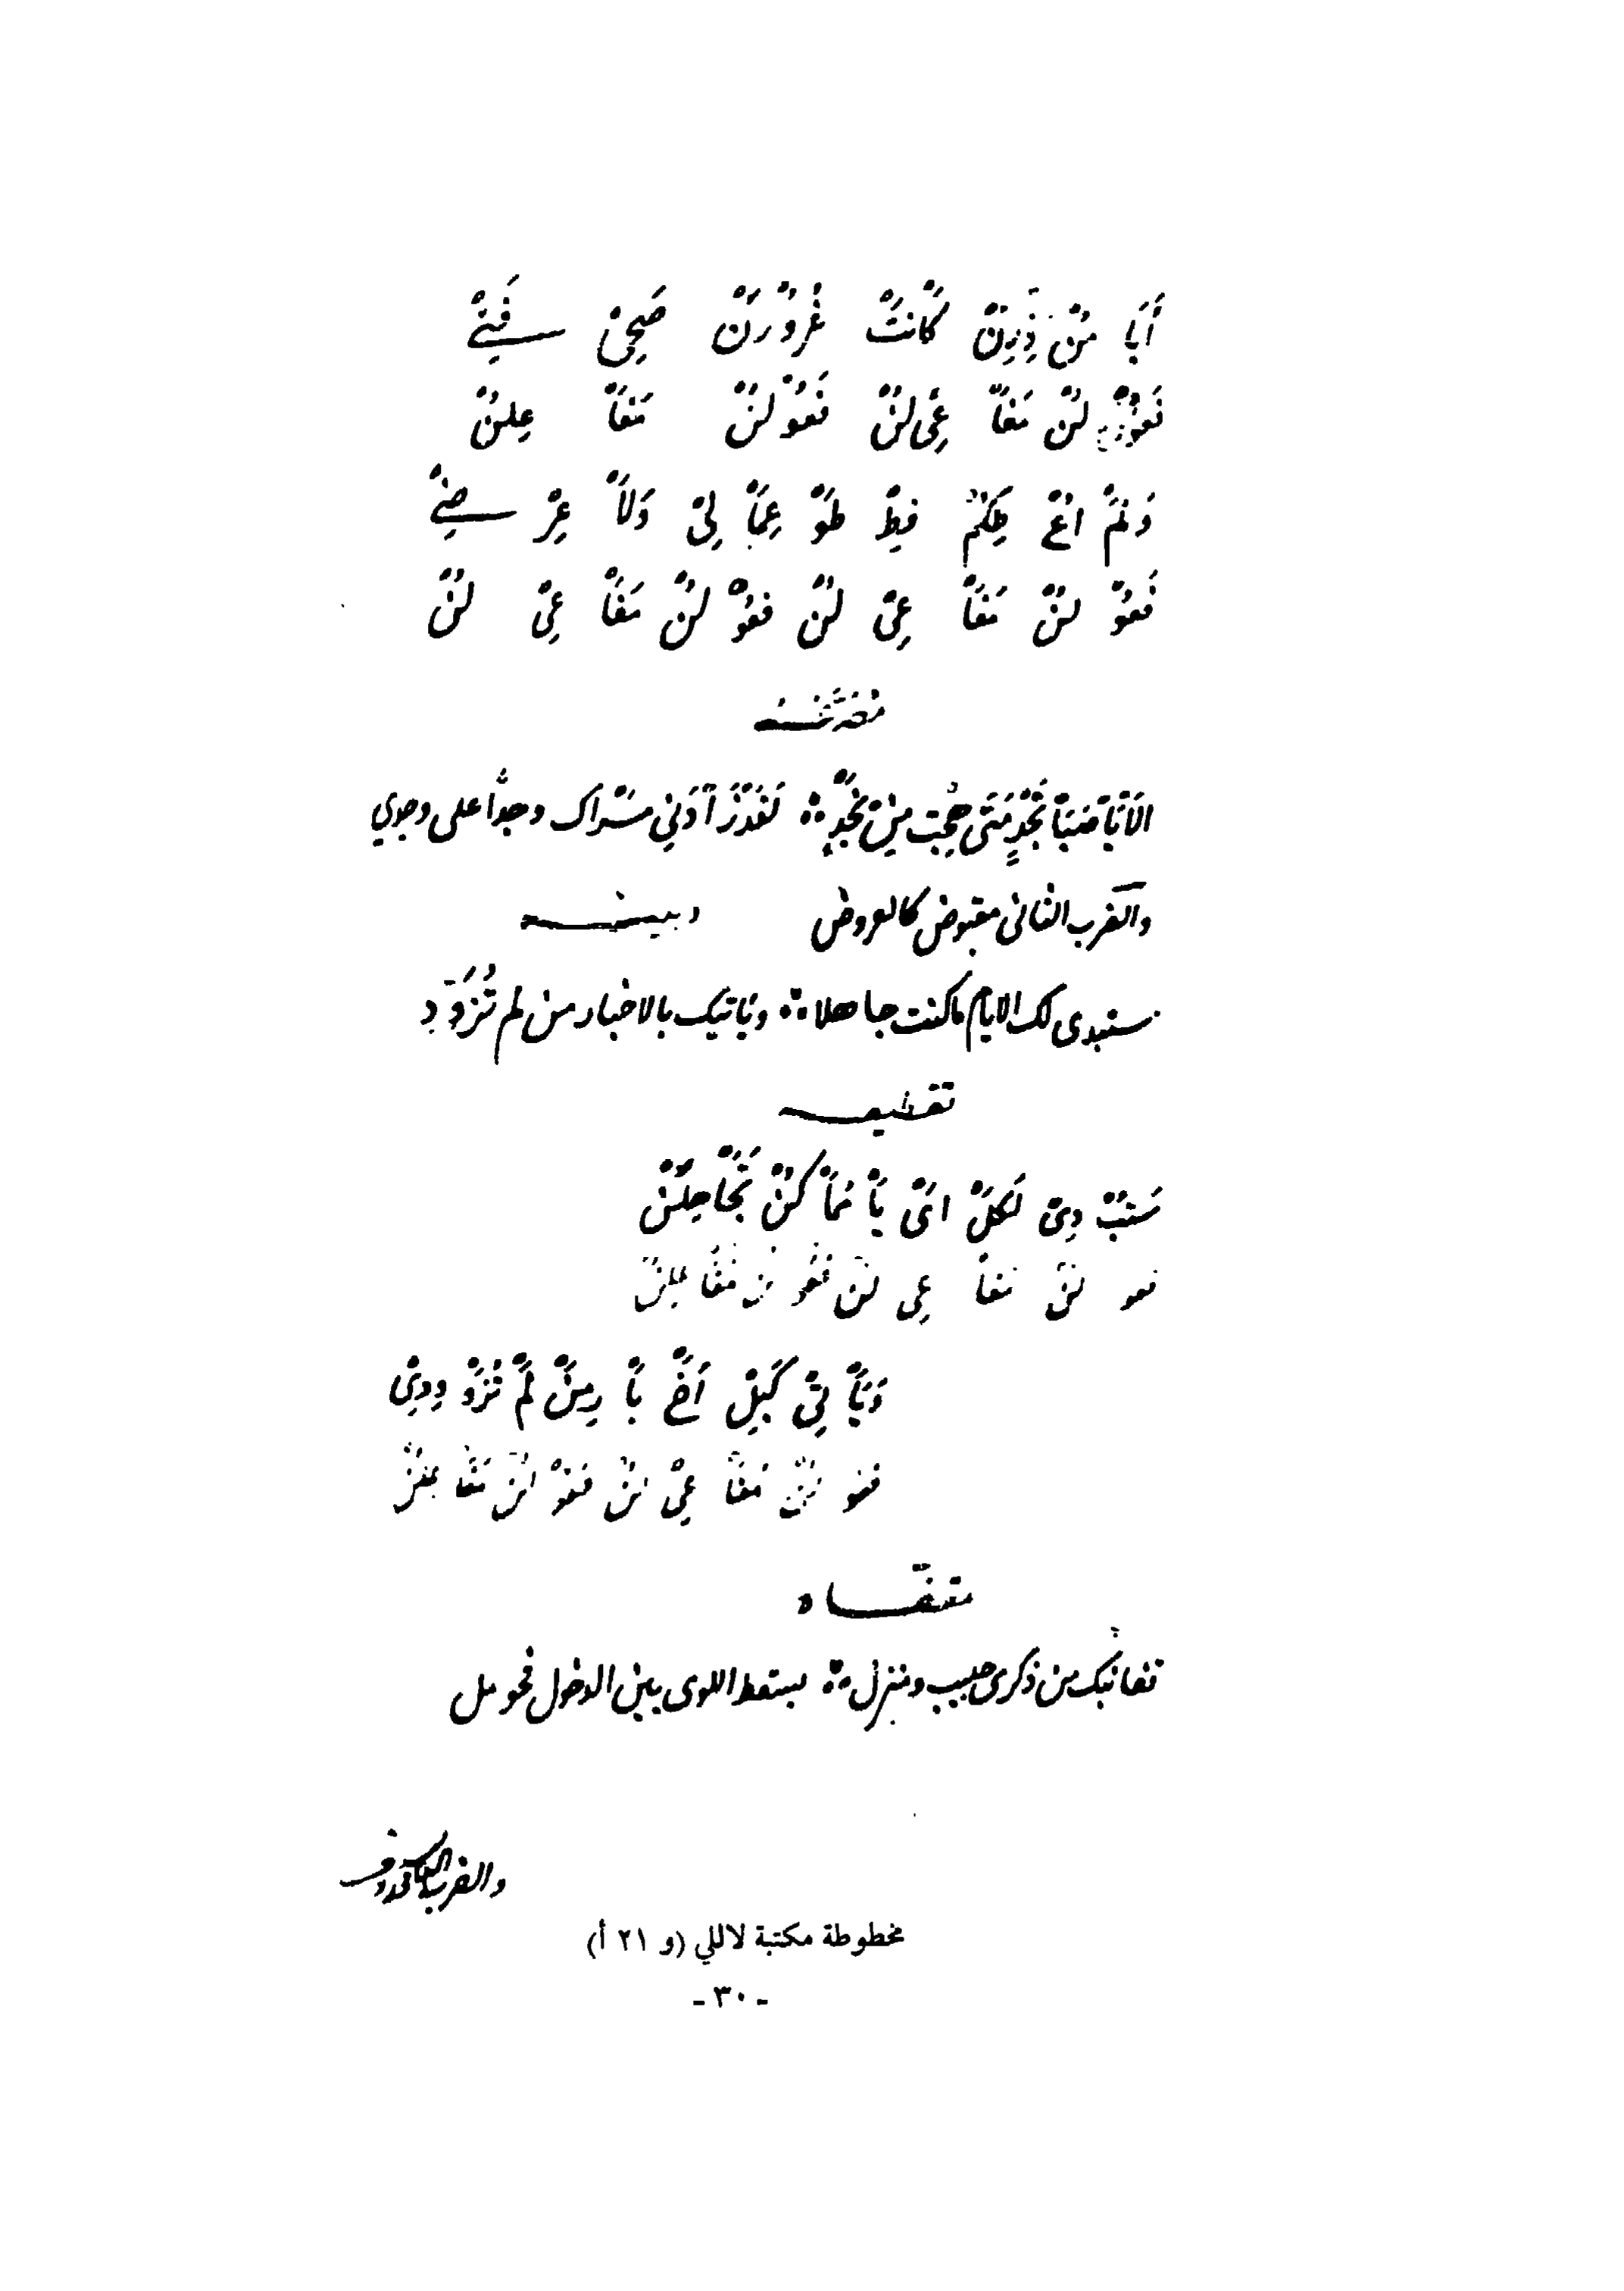 أَبَا مُنْ ذِرِنْ كَانَتْ غُرُورَنْ صَحِيْ فَتِيْ
فَعُوْ لُنْ مَفَا عِيْ لُنْ فَعُوْ لُنْ مَفَا عِلُنْ
وَلَمْ اُعْ طِكُمْ فِطْ طَوْ عِمَا لِيْ وَلَا عِرْ ضِيْ
فَعُوْ لُنْ مَفَا عِيْ لُنْ فَعُوْ لُنْ مَفَا عِيْ لُنْ
اَلَا يَا صَبَا نَجْدٍ مَتَى هِجْتِ مِنْ نَجْدٍ لَقَدْ زَادَنِي مَسْرَاكِ وجدًا على وجدي
والضرب الثانى مقبوض كالعروض وبيته
ستبدى لك الايام ما كنت جاهلا ويأتيك بالاخبار من لم تُزَوِّدِ
تقطيعه
سَتُبْ دِيْ لَكَلْ اَيْ يَا مُمَا كُنْ تَجَا هِلَنْ
فعو لن مفا عي لن فعو لن مفا علن
وَيَأْ تِيْ كَبِلْ اَخْ بَا رِمَنْ لَمْ تُزَوْ وِدِيْ
فعو لن مفا عي لن فعو لن مفا علن
مثناه
قفا نبك من ذكرى حبيب ومنزل بسقط اللوى بين الدخول فحومل
والضرب
مخطوطة مكتبة لاللي (و ٢١ أ)
- ٣٠ -